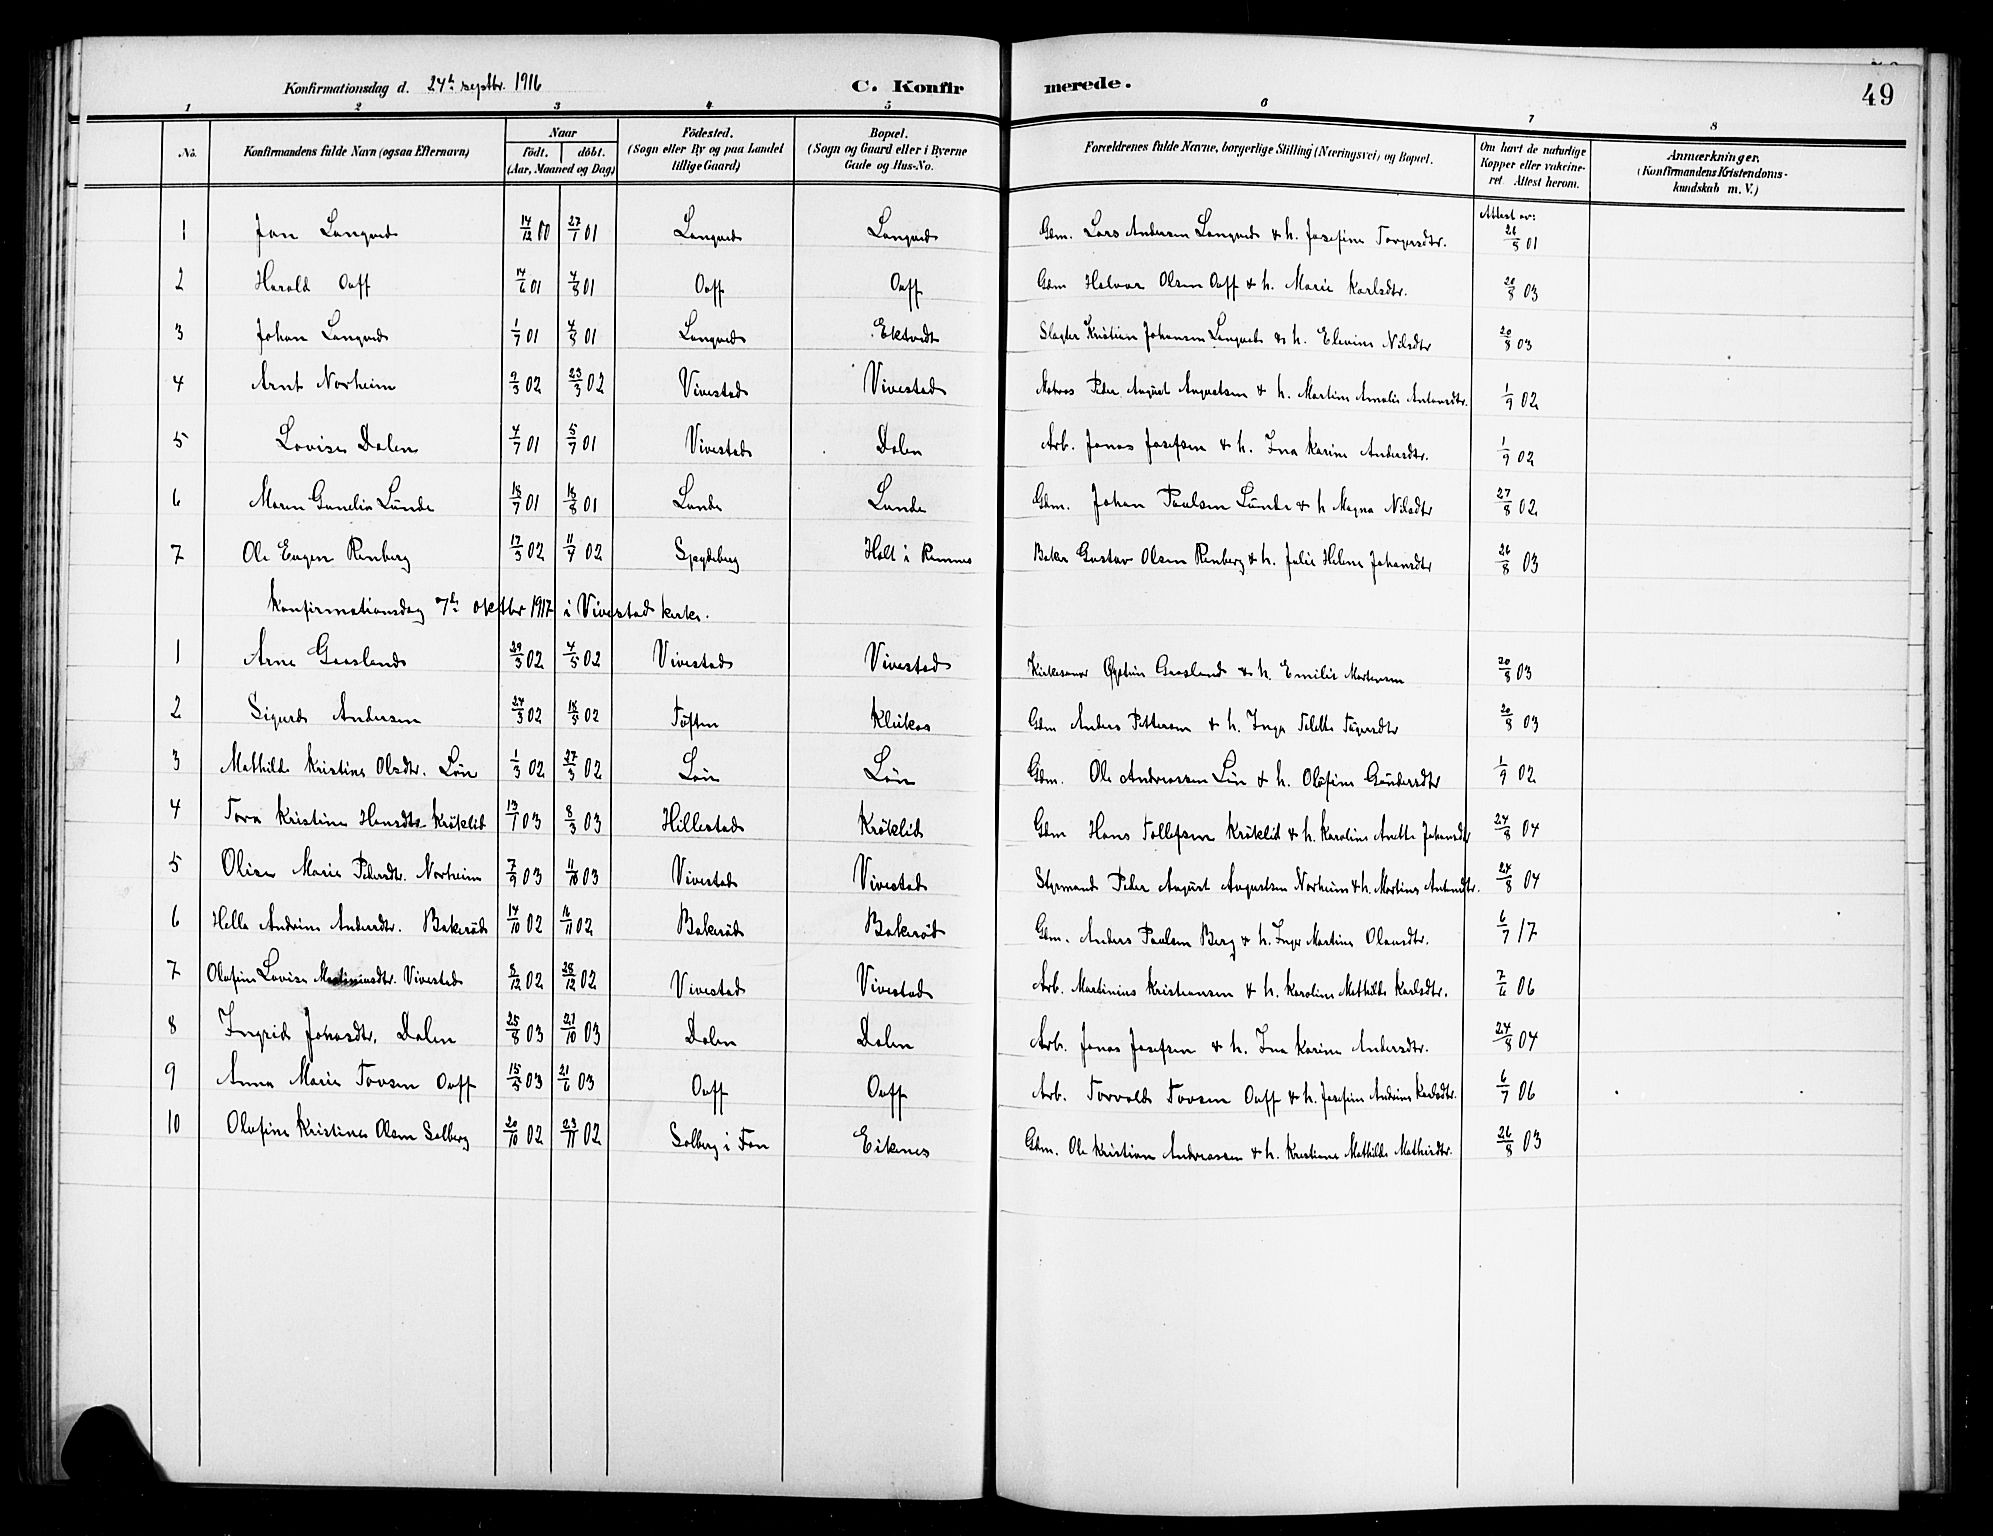 Konfirmationsdag d. 24de septbr. 1916 C. Konfirmerede. 49
1 2 3 4 5 6 7 8
No. Konfirmandens fulde Navn (ogsaa Efternavn) Naar födt. döbt. (Aar, Maaned og Dag) Födested. (Sogn eller By og paa Landet tillige Gaard) Bopæl. (Sogn og Gaard eller i Byerne Gade og Hus-No. Forældrenes fulde Navne, borgerlige Stilling (Næringsvei) og Bopæl. Om havt de naturlige Kopper eller vakcineret. Attest herom. Anmærkninger. (Konfirmandens Kristendomskundskab m. V.)
Attest av:
1 Jon Langved 14/12 00 27/1 01 Langved Langved Gdm. Lars Andersen Langved & h. Josefine Torgersdtr. 26/5 01
2 Harald Oaff 14/6 01 4/8 01 Oaff Oaff Gdm Halvor Olsen Oaff & h. Marie Karlsdtr. 20/8 03
3 Johan Langved 1/7 01 4/8 01 Langved Ektvedt Slagter Kristian Johansen Langved & h. Elevine Nilsdtr 20/8 03
4 Arnt Norheim 2/3 02 23/3 02 Vivestad Vivestad Matros Peder August Augustsen & h. Martine Amalie Antonsdtr. 1/9 02
5 Lovise Dalen 4/7 01 5/9 01 Vivestad Dalen Arb. Jonas Josefsen & h. Ina Karine Andersdtr. 1/9 02
6 Maren Gunelia Lunde 18/7 01 18/8 01 Lunde Lunde Gdm. Johan Paulsen Lunde & h Magna Nilsdtr 27/8 02
7 Ole Eugen Renberg 17/3 02 11/9 02 Spydeberg Holt i Ramnes Baker Gustav Olsen Renberg & h. Julie Helene Johansdtr 26/8 03
Konfirmationsdag 7de oktbr 1917 i Vivestad kirke.
1 Arne Gaasland 29/3 02 4/5 02 Vivestad Vivestad Kirkesanger Øystein Gaasland & h. Emilie Martensen 20/8 03
2 Sigurd Andersen 24/3 02 18/5 02 Toften Klükas Gdm Anders Pettersen & h. Inga Teletta Tügersdtr 20/8 03
3 Mathilde Kristine Olsdtr. Løn 1/3 02 27/3 02 Løn Løn Gdm. Ole Andreassen Løn & h. Olufine Gundersdtr 1/9 02
4 Tora Kristine Hansdtr Kröklid 13/1 03 8/3 03 Hillestad Kröklid Gdm Hans Tollefsen Kröklid & h. Karoline Anette Johansdtr 24/8 04
5 Olise Marie Pedersdtr. Norheim 7/9 03 11/10 03 Vivestad Vivestad Styrmand Peder August Augustsen Norheim & h. Martine Antonsdtr. 24/8 04
6 Hella Andrine Andersdtr. Bakeröd 14/10 02 16/11 02 Bakeröd Bakeröd Gdm. Anders Paulsen Berg & h. Inger Martine Olausdtr. 6/7 17
7 Olufine Lovise Martiniusdtr. Vivestad 8/12 02 28/12 02 Vivestad Vivestad Arb. Martinius Kristiansen & h. Karoline Mathilde Karlsdtr. 7/6 06
8 Ingrid Jonasdtr. Dalen 25/8 03 21/10 03 Dalen Dalen Arb. Jonas Josefsen & h. Ina Karine Andersdtr. 24/8 04
9 Anna Marie Tovsen Oaff 15/5 03 21/6 03 Oaff Oaff Arb. Torvald Tovsen Oaff & h. Josefine Andrine Karlsdtr. 6/7 06
10 Olufine Kristine Olsen Solberg 20/10 02 23/11 02 Solberg i Fon Eikenes Gdm. Ole Kristian Andreassen & h. Kristiane Mathilde Mathisdtr. 26/8 03